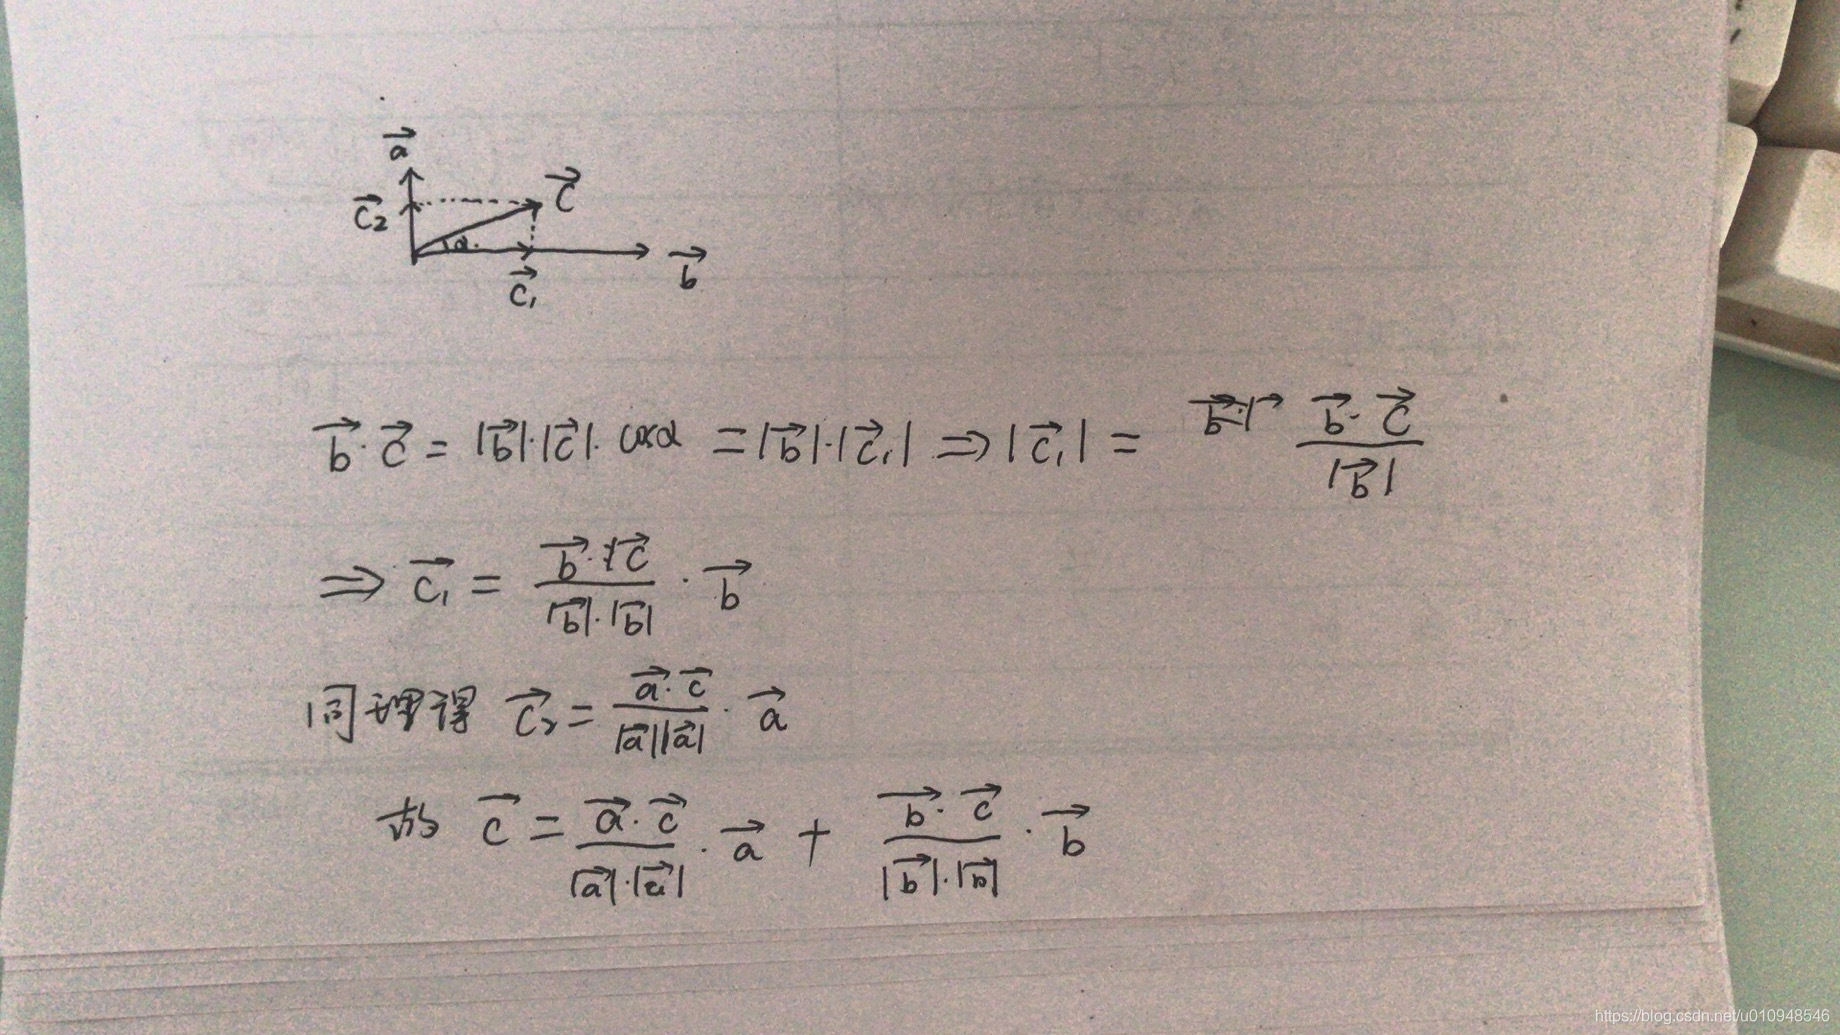 $\vec{a}$
$\vec{c_2}$ $\vec{c}$
$\alpha$
$\vec{b}$
$\vec{c_1}$
$\vec{b} \cdot \vec{c} = |\vec{b}| \cdot |\vec{c}| \cdot \cos\alpha = |\vec{b}| \cdot |\vec{c_1}| \Rightarrow |\vec{c_1}| = \frac{\vec{b} \cdot \vec{c}}{|\vec{b}|}$
$\Rightarrow \vec{c_1} = \frac{\vec{b} \cdot \vec{c}}{|\vec{b}| \cdot |\vec{b}|} \cdot \vec{b}$
同理得 $\vec{c_2} = \frac{\vec{a} \cdot \vec{c}}{|\vec{a}||\vec{a}|} \cdot \vec{a}$
故 $\vec{c} = \frac{\vec{a} \cdot \vec{c}}{|\vec{a}| \cdot |\vec{a}|} \cdot \vec{a} + \frac{\vec{b} \cdot \vec{c}}{|\vec{b}| \cdot |\vec{b}|} \cdot \vec{b}$
https://blog.csdn.net/u010948546